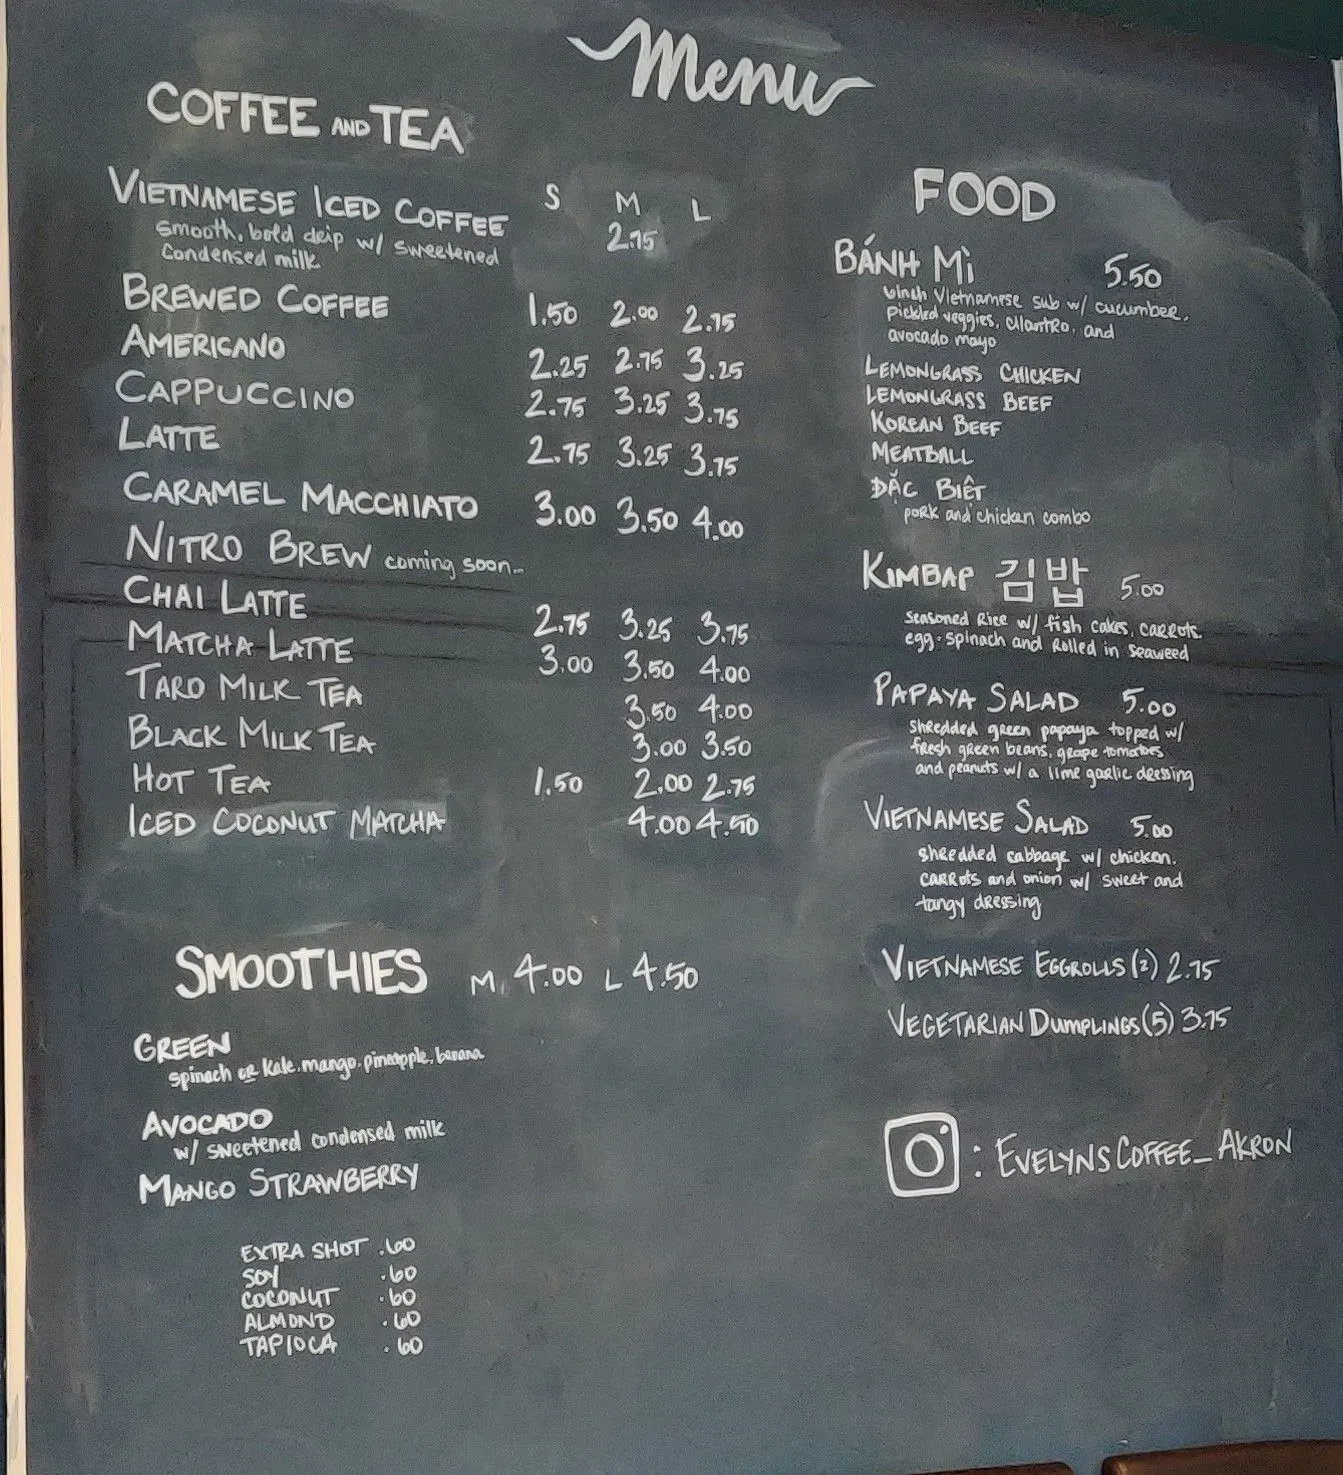 Menu
COFFEE AND TEA
S M L
VIETNAMESE ICED COFFEE 2.75
smooth, bold drip w/ sweetened
condensed milk
BREWED COFFEE 1.50 2.00 2.75
AMERICANO 2.25 2.75 3.25
CAPPUCCINO 2.75 3.25 3.75
LATTE 2.75 3.25 3.75
CARAMEL MACCHIATO 3.00 3.50 4.00
NITRO BREW coming soon...
CHAI LATTE 2.75 3.25 3.75
MATCHA LATTE 3.00 3.50 4.00
TARO MILK TEA 3.50 4.00
BLACK MILK TEA 3.00 3.50
HOT TEA 1.50 2.00 2.75
ICED COCONUT MATCHA 4.00 4.50
SMOOTHIES M 4.00 L 4.50
GREEN
spinach OR kale, mango, pineapple, banana
AVOCADO
w/ sweetened condensed milk
MANGO STRAWBERRY
EXTRA SHOT .60
SOY .60
COCONUT .60
ALMOND .60
TAPIOCA .60
FOOD
BÁNH MÌ 5.50
6inch Vietnamese sub w/ cucumber,
pickled veggies, cilantro, and
avocado mayo
LEMONGRASS CHICKEN
LEMONGRASS BEEF
KOREAN BEEF
MEATBALL
ĐẶC BIỆT
pork and chicken combo
KIMBAP 김밥 5.00
seasoned rice w/ fish cakes, carrots,
egg, spinach and rolled in seaweed
PAPAYA SALAD 5.00
shredded green papaya topped w/
fresh green beans, grape tomatoes
and peanuts w/ a lime garlic dressing
VIETNAMESE SALAD 5.00
shredded cabbage w/ chicken,
carrots and onion w/ sweet and
tangy dressing
VIETNAMESE EGGROLLS (2) 2.75
VEGETARIAN DUMPLINGS (5) 3.75
: EVELYNSCOFFEE_AKRON